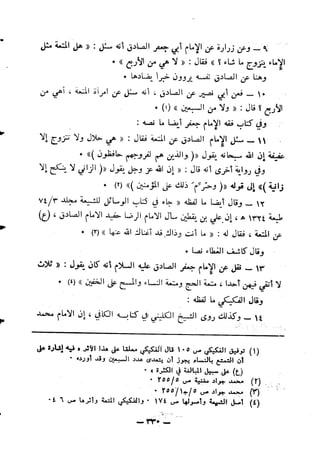 ٩ ــ وعن زرارة عن الإمام أبي جعفر الصادق أنه سئل : « هل المتعة مثل
الإماء يتزوج ما شاء ؟ » فقال : « لا هي من الأربع » ٠
وهنا عن الصادق نفسه يروون خبراً يضادها ٠
١٠ ــ فعن أبي نصير عن الصادق ، أنه سئل عن امرأة المتعة ، أهي من
الأربع ؟ قال : « ولا من السبعين » (١) ٠
وفي كتاب فقه الإمام جعفر أيضا ما نصه :
١١ ــ سئل الإمام الصادق عن المتعة فقال : « هي حلال ولا تتزوج إلا
عفيفة إن الله سبحانه يقول «( والذين هم لفروجهم حافظون )» ٠
وفي رواية أخرى أنه قال : « إن الله عز وجل يقول «( والزاني لا ينكح إلا
زانية )» إلى قوله «( وحرّم ذلك على المؤمنين )» (٢) ٠
١٢ ــ وقال أيضا ما لفظه « جاء في كتاب الوسائل للشيعة مجلد ٧٤/٣
طبعة ١٣٢٤ هـ ، إن علي بن يقطين سأل الامام الرضا حفيد الامام الصادق ، (ع)
عن المتعة ، فقال له : « ما أنت وذاك قد أغناك الله عنها » (٣) ٠
وقال كاشف الغطاء نصا ٠
١٣ ــ نقل عن الإمام جعفر الصادق عليه السلام أنه كان يقول : « ثلاث
لا أتقي فيهن أحدا ، متعة الحج ومتعة النساء والمسح على الخفين » (٤) ٠
وقال الفكيكي ما لفظه :
١٤ ــ وكذلك روى الشيخ الكليني في كتابه الكافي ، إن الامام محمد
(١) توفيق الفكيكي ص ١٠٥ قال الفكيكي معلقا على هذا الأثر « فيه إشارة على
أن التمتع بالنساء يجوز أن يتعدى عدد السبعين وقد أورده ٠
(ع) على سبيل المبالغة في الكثرة » ٠
(٢) محمد جواد مغنية ص ٢٥٥/٥ ٠
(٣) محمد جواد ص ٢٥٥/١+/٥ ٠
(٤) أصل الشيعة وأصولها ص ١٧٤ ٠ والفكيكي المتعة وأثرها ص ٤٦ ٠
ــ ٣٣٠ ــ